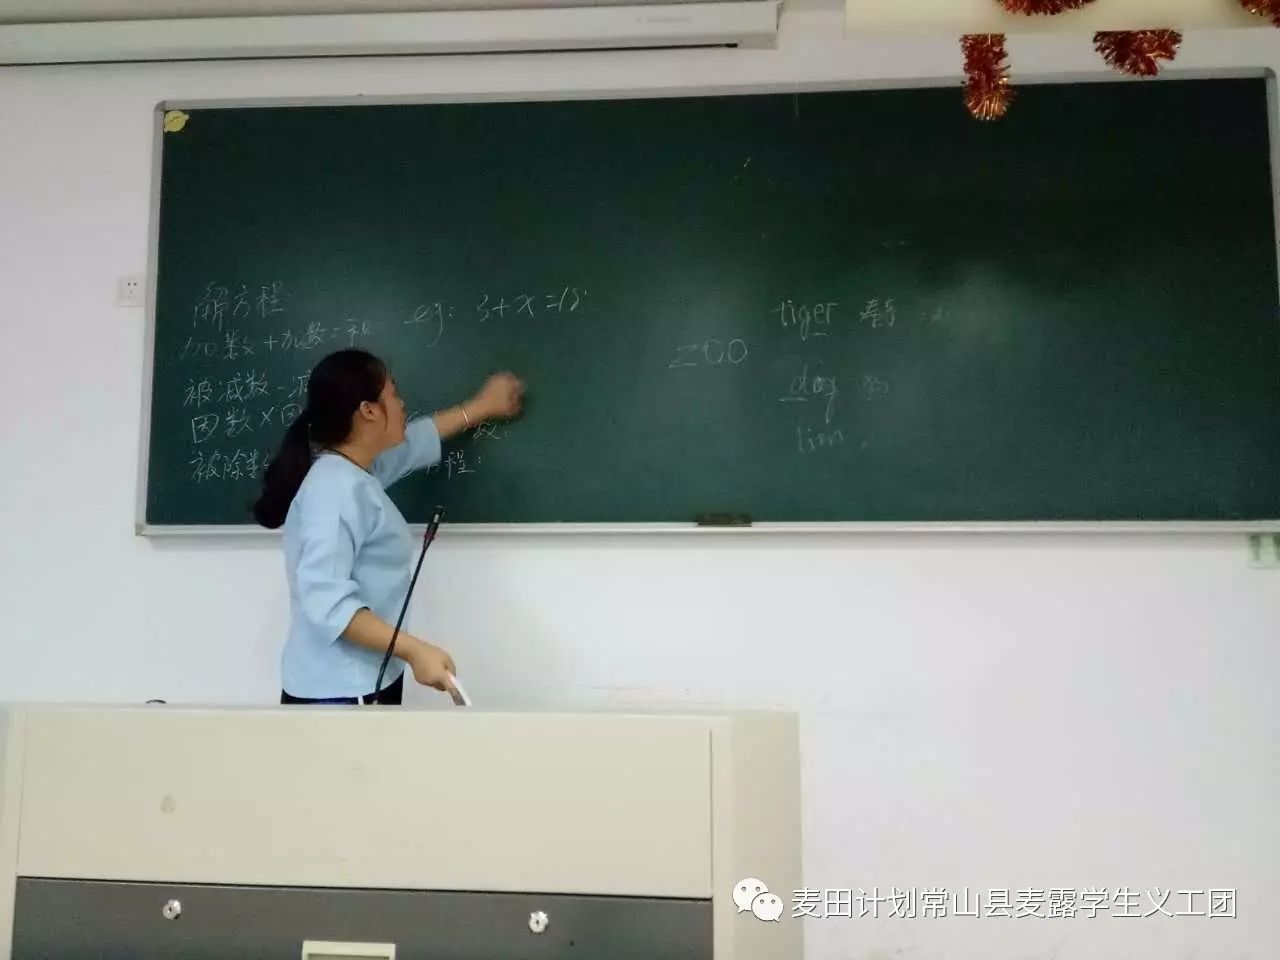 解方程
加数+加数=和
eg: 3+x=18
被减数-减
因数×因
数
被除数
程:
zoo
tiger
dog 狗
lion
麦田计划常山县麦露学生义工团